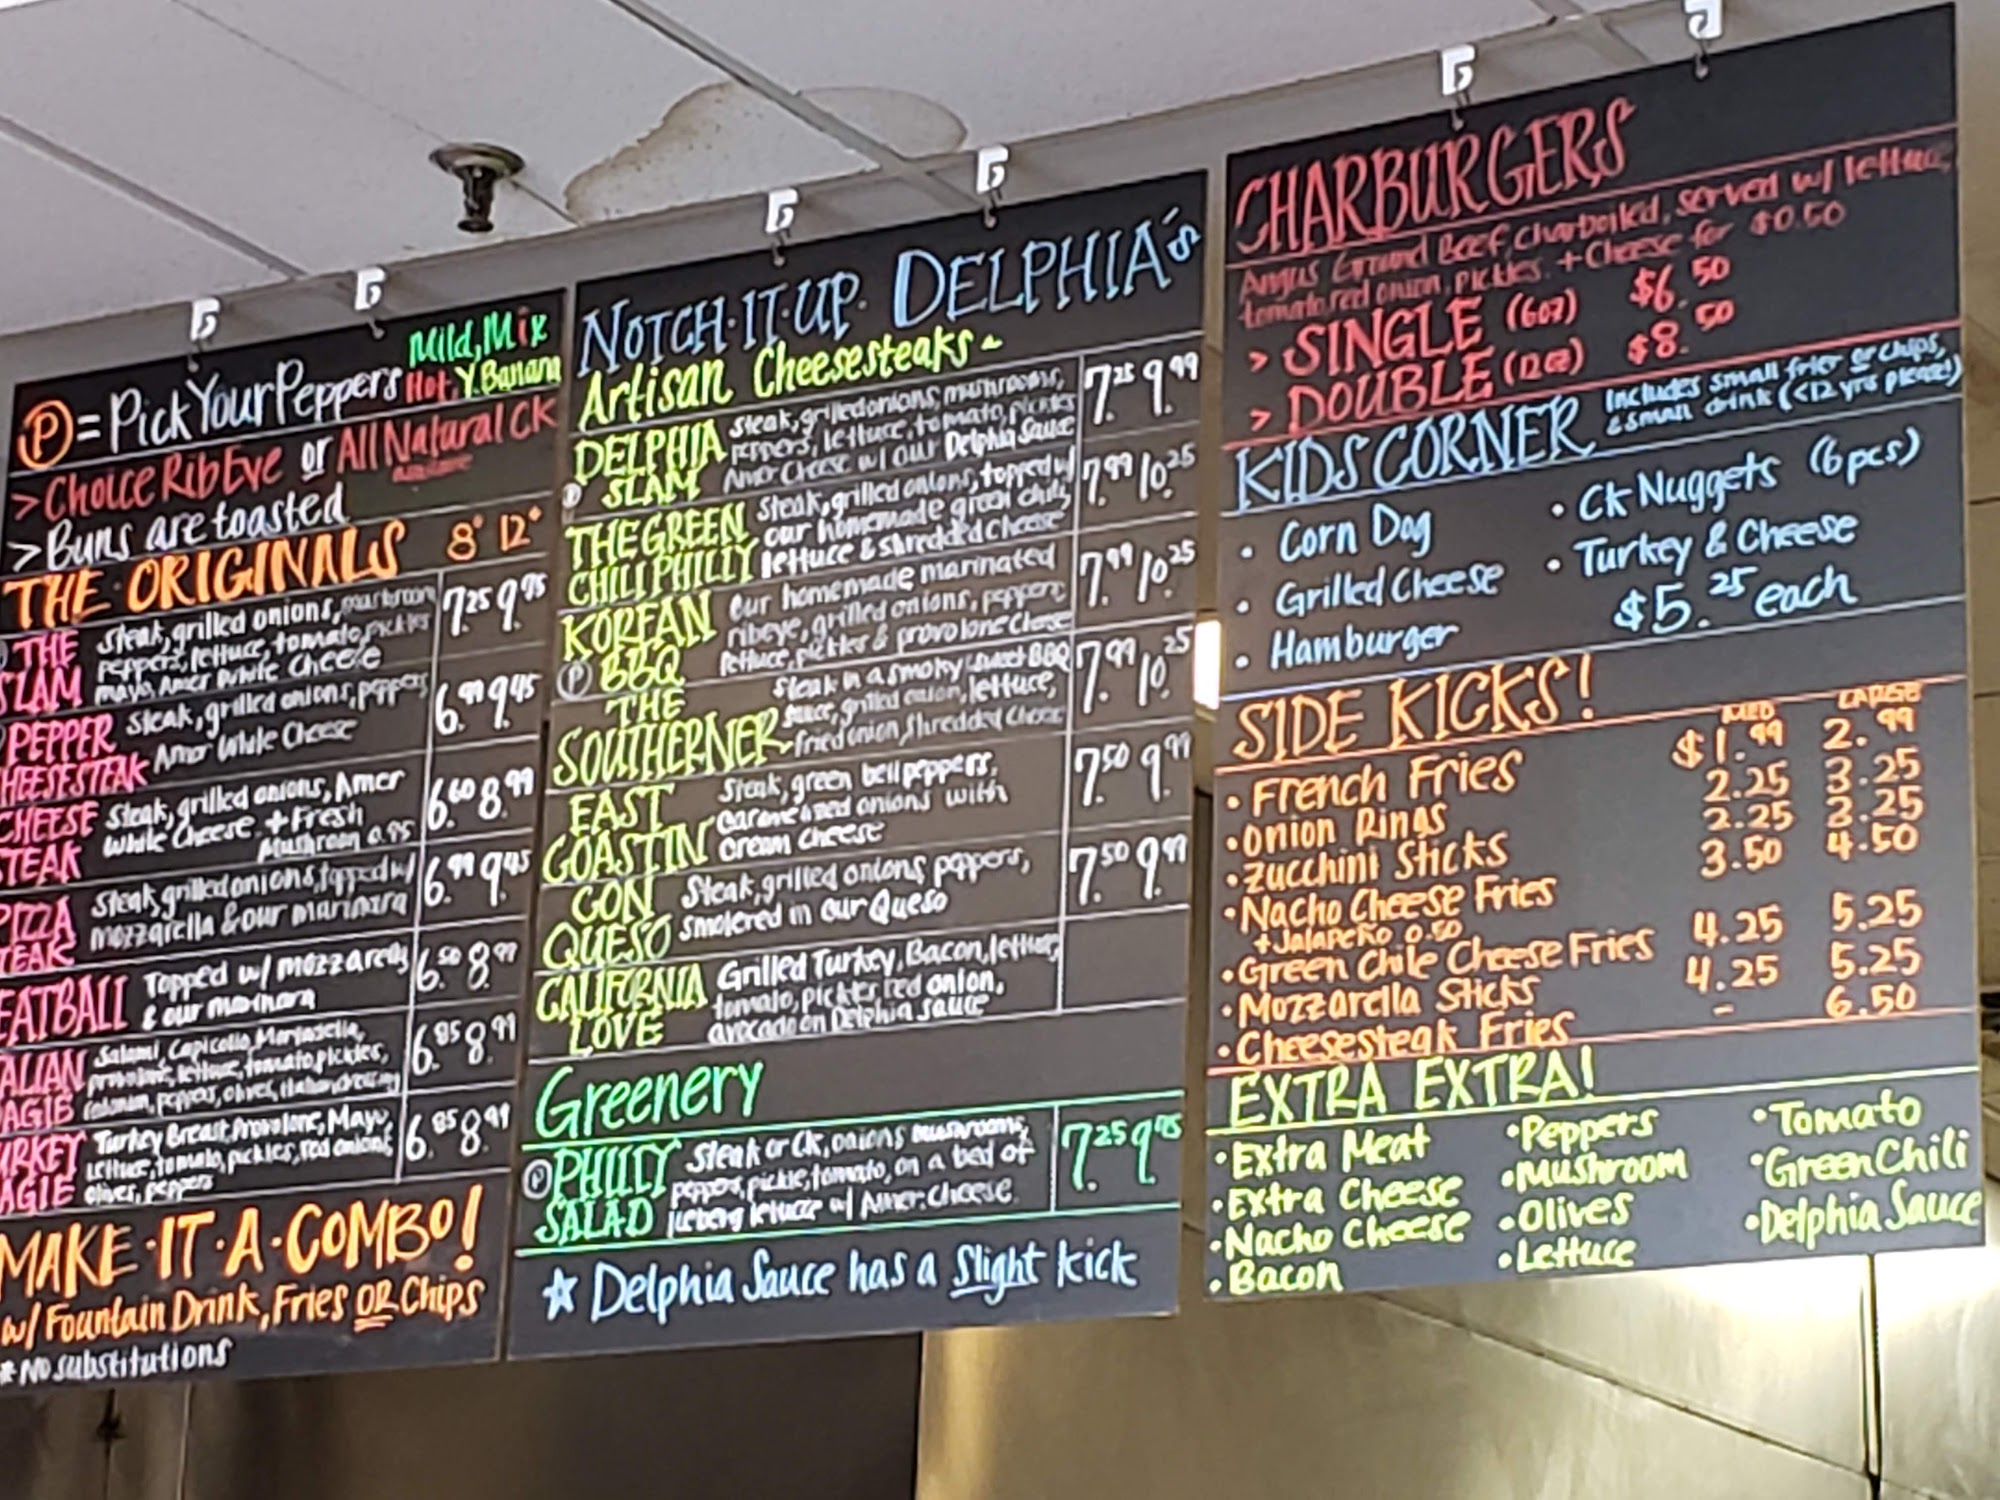 P = Pick Your Peppers Mild, Mix
Hot, Y. Banana
> Choice Rib Eye or All Natural CK
> Buns are toasted
THE ORIGINALS 8" 12"
THE SLAM
Steak, grilled onions, mushroom
peppers, lettuce, tomato, pickles
mayo, Amer White Cheese
7.25 9.95
PEPPER
HEESESTEAK
Steak, grilled onions, peppers
Amer White Cheese
6.99 9.45
CHEESE
STEAK
Steak, grilled onions, Amer
White Cheese + Fresh
Mushroom 0.95
6.60 8.99
PIZZA
TEAK
Steak, grilled onions, topped w/
mozzarella & our marinara
6.99 9.45
EATBALL
Topped w/ mozzarella
& our marinara
6.50 8.99
ALIAN
AGIE
Salami, Capicollo, Mortadella,
provolone, lettuce, tomato, pickles,
onion, peppers, olives, Italian dressing
6.85 8.99
URKEY
AGIE
Turkey Breast, Provolone, Mayo,
lettuce, tomato, pickles, red onions,
olives, peppers
6.85 8.99
MAKE·IT·A·COMBO!
w/ Fountain Drink, Fries OR Chips
* NO substitutions
NOTCH·IT·UP· DELPHIA's
Artisan Cheesesteaks~
DELPHIA
P SLAM
Steak, grilled onions, mushrooms,
peppers, lettuce, tomato, pickles
Amer Cheese w/ our Delphia Sauce
7.25 9.99
THE GREEN
CHILI PHILLY
Steak, grilled onions, topped w/
our homemade green chili,
lettuce & shredded cheese
7.99 10.25
KOREAN
P BBQ
Our homemade marinated
ribeye, grilled onions, peppers,
lettuce, pickles & provolone cheese
7.99 10.25
THE
SOUTHERNER
Steak in a smoky sweet BBQ
sauce, grilled onion, lettuce,
fried onion, shredded cheese
7.99 10.25
EAST
COASTIN
Steak, green bell peppers,
caramelized onions with
cream cheese
7.50 9.99
CON
QUESO
Steak, grilled onions, peppers,
smothered in our Queso
7.50 9.99
CALIFORNIA
LOVE
Grilled Turkey, Bacon, lettuce,
tomato, pickles, red onion,
avocado on Delphia sauce
Greenery
P PHILLY
SALAD
Steak or CK, onions, mushrooms,
peppers, pickle, tomato, on a bed of
iceberg lettuce w/ Amer. cheese
7.25 9.95
★ Delphia Sauce has a Slight kick
CHARBURGERS
Angus Ground Beef, charboiled, served w/ lettuce
tomato, red onion, pickles. + Cheese for $0.50
> SINGLE (6oz) $6.50
> DOUBLE (12oz) $8.50
KIDS CORNER Includes small fries or chips,
& small drink (<12 yrs please!)
• Corn Dog
• Grilled Cheese
• Hamburger
• CK Nuggets (6pcs)
• Turkey & Cheese
$5.25 each
SIDE KICKS! MED LARGE
• French Fries $1.99 2.99
• Onion Rings 2.25 3.25
• Zucchini Sticks 2.25 3.25
• Nacho Cheese Fries 3.50 4.50
+ Jalapeño 0.50
• Green Chile Cheese Fries 4.25 5.25
• Mozzarella Sticks 4.25 5.25
• Cheesesteak Fries - 6.50
EXTRA EXTRA!
• Extra Meat
• Extra Cheese
• Nacho Cheese
• Bacon
• Peppers
• Mushroom
• Olives
• Lettuce
• Tomato
• Green Chili
• Delphia Sauce